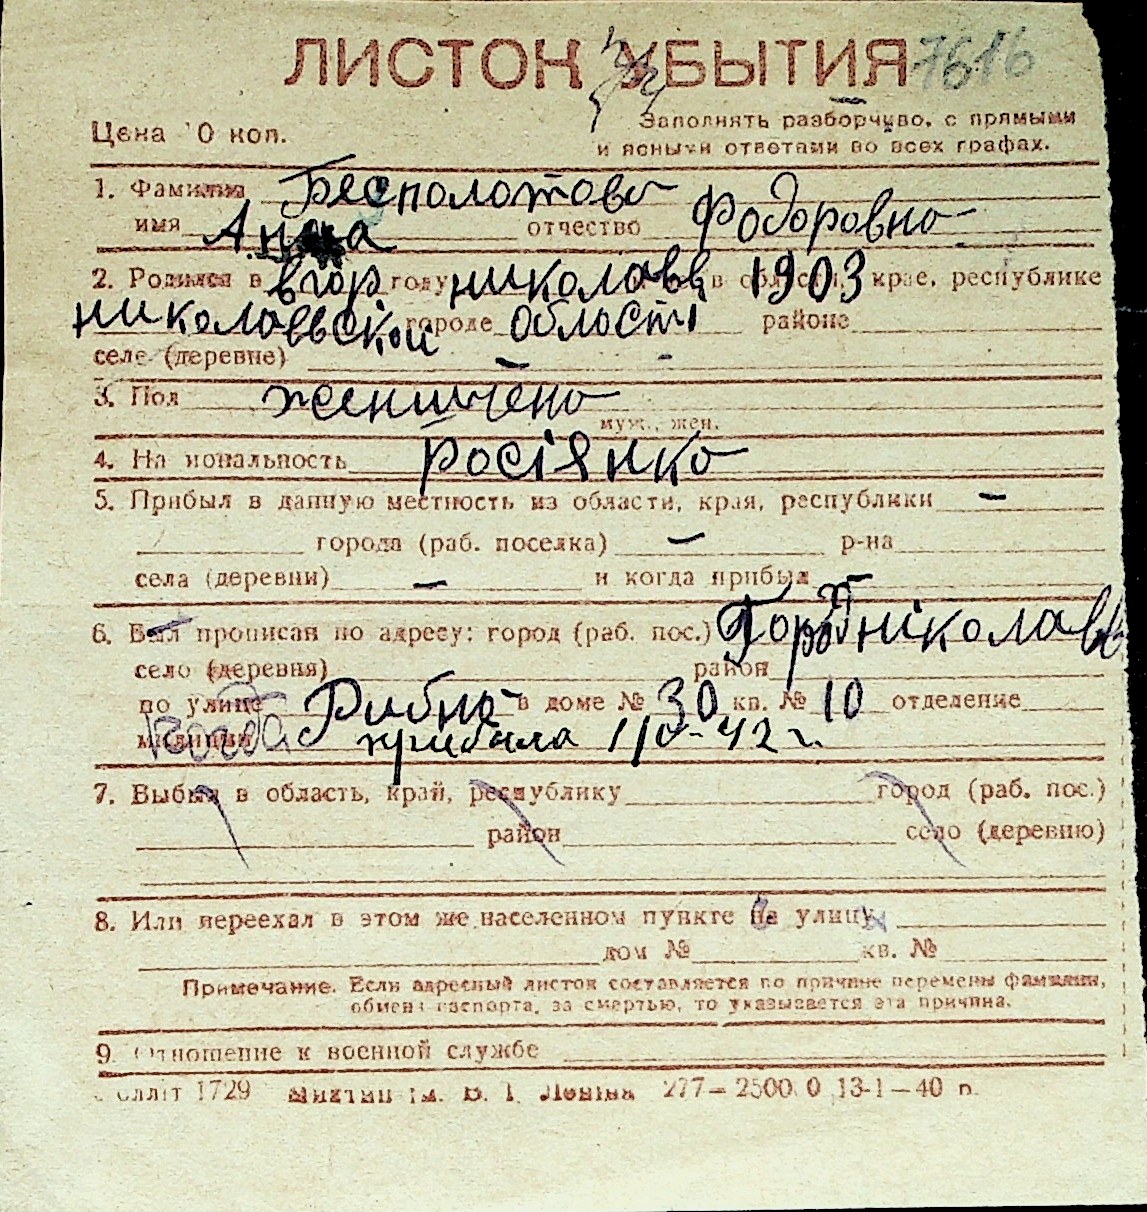 ЛИСТОК УБЫТИЯ 7616
Цена 0 коп.
Заполнять разборчиво, с прямыми
и ясными ответами во всех графах.
1. Фамилия Бесполотова
имя Анна отчество Фодоровно
2. Родился в вгор году николавв в области, 1903 крае, республике
николаевской городе області районе
селе (деревне) —
3. Пол женшчено
муж., жен.
4. Национальность росіянко
5. Прибыл в данную местность из области, края, республики —
города (раб. поселка) — р-на
села (деревни) — и когда прибыл —
6. Был прописан по адресу: город (раб. пос.) Город ніколавв
село (деревня) район
по улице Рибна в доме № 30 кв. № 10 отделение
милиции когда прибала 1/V-42 г.
7. Выбыл в область, край, республику город (раб. пос.)
район село (деревню)
8. Или переехал в этом же населенном пункте на улицу
дом № кв. №
Примечание. Если адресный листок составляется по причине перемены фамилии,
обмена паспорта, за смертью, то указывается эта причина.
9. Отношение к военной службе
1729 ім. В. І. Леніна 277— 2500 0 13-1—40 п.